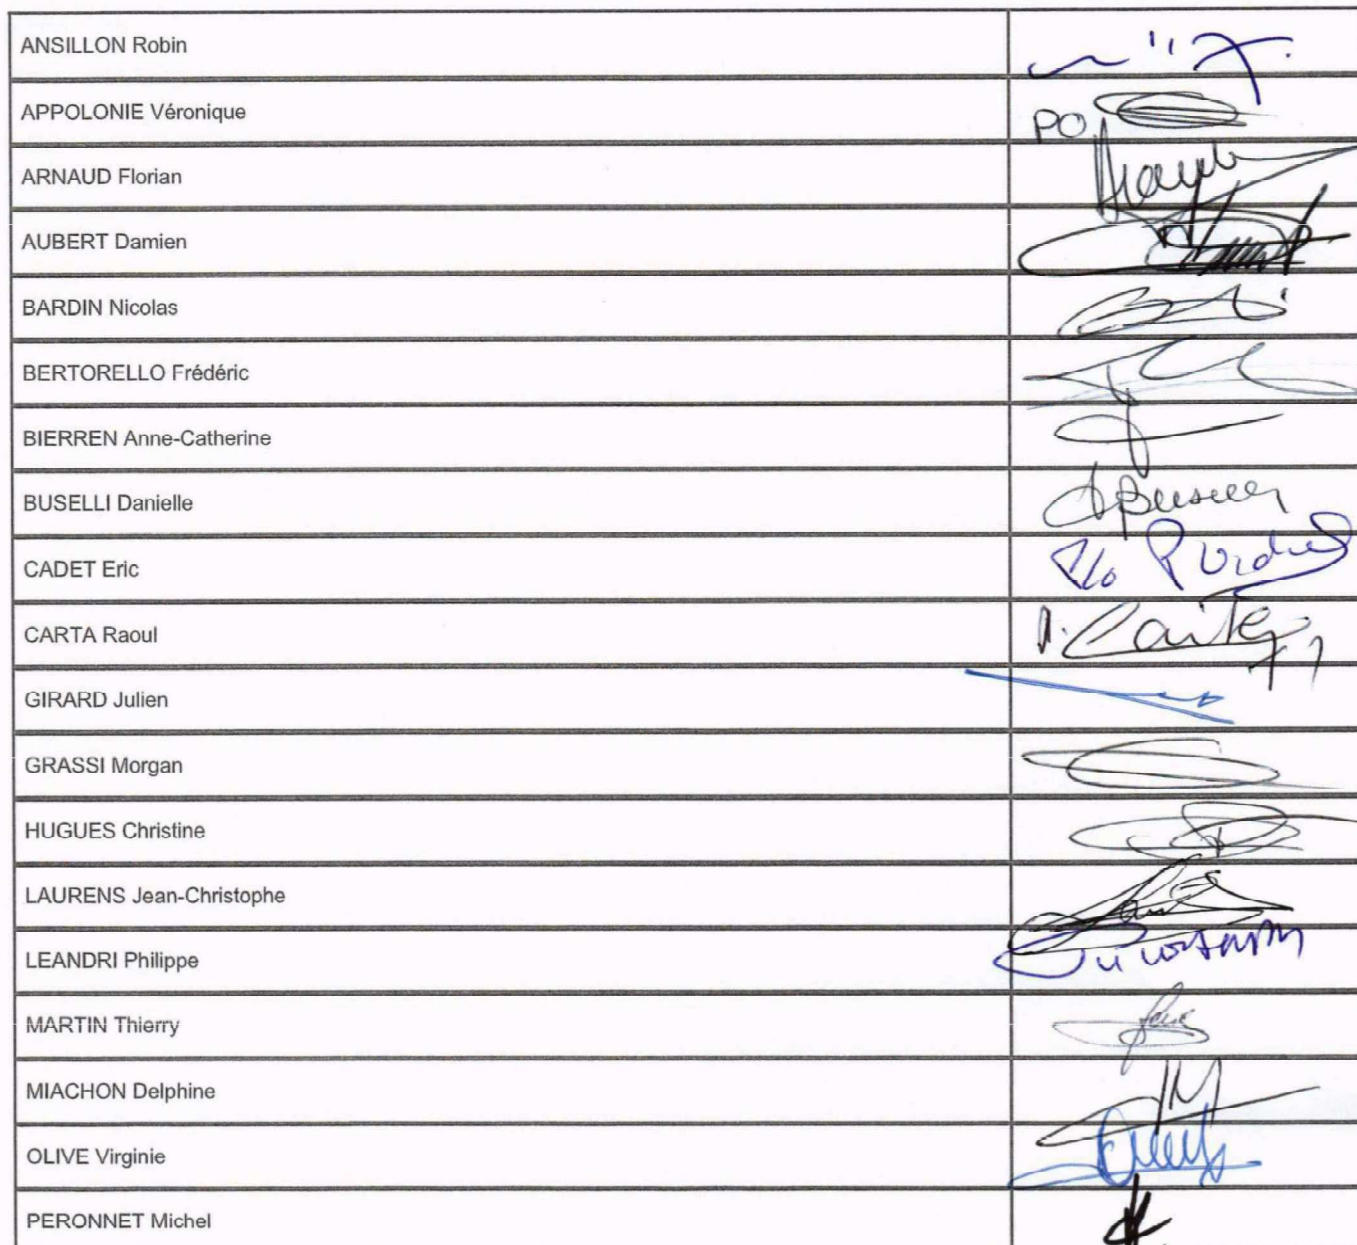 ANSILLON Robin
APPOLONIE Véronique
PO
ARNAUD Florian
AUBERT Damien
BARDIN Nicolas
BERTORELLO Frédéric
BIERREN Anne-Catherine
BUSELLI Danielle
CADET Eric
P/o
CARTA Raoul
GIRARD Julien
GRASSI Morgan
HUGUES Christine
LAURENS Jean-Christophe
LEANDRI Philippe
MARTIN Thierry
MIACHON Delphine
OLIVE Virginie
PERONNET Michel